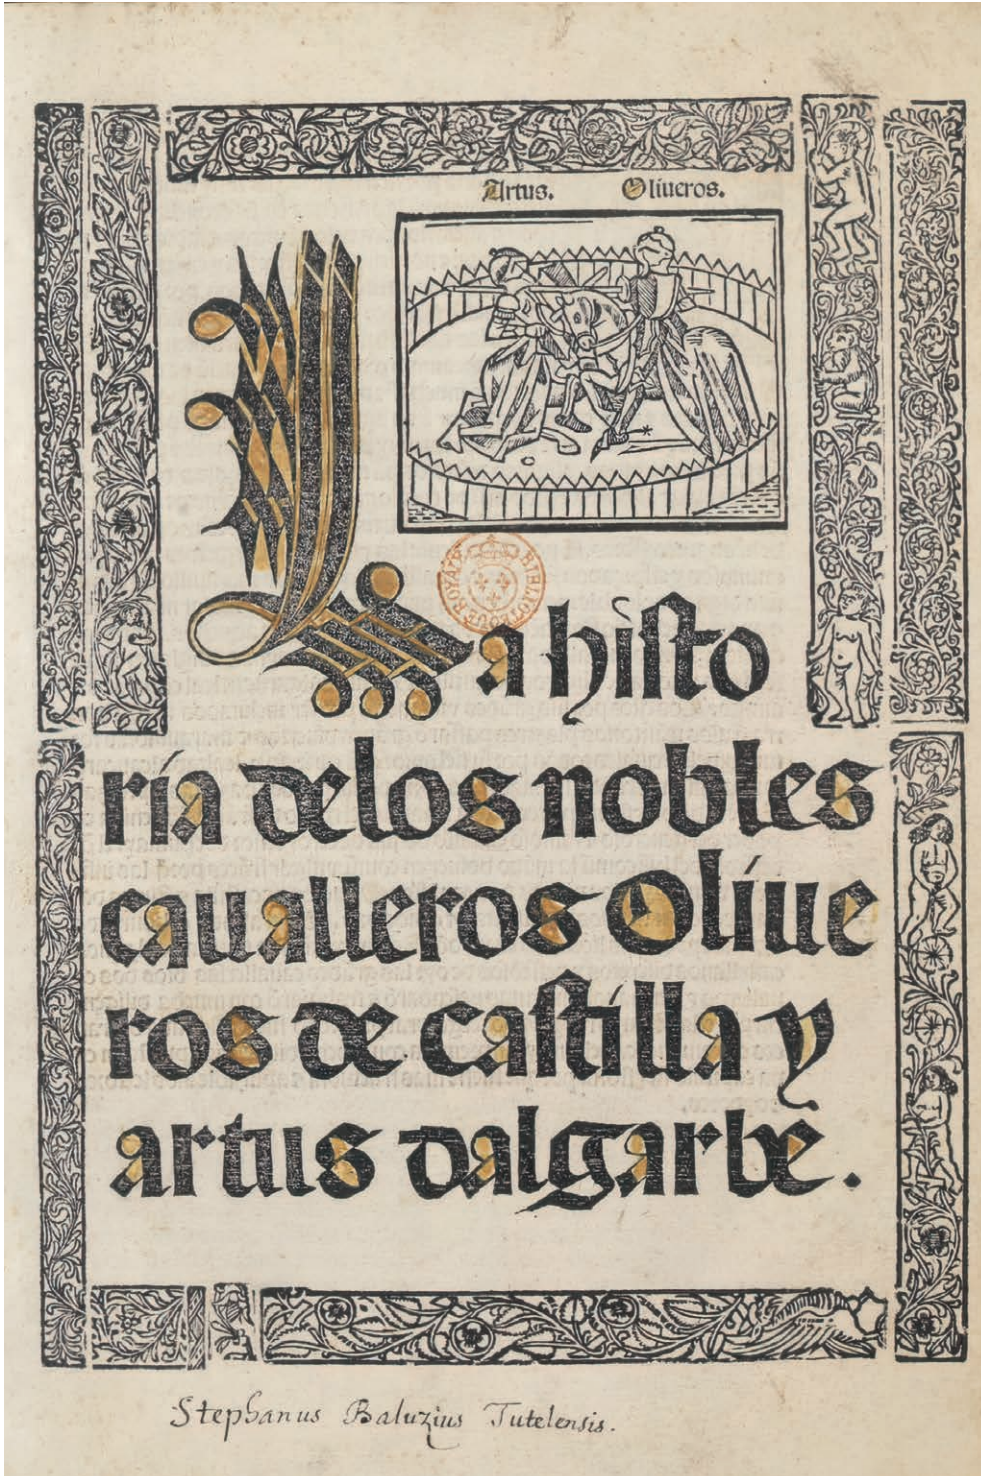 Artus. Oliueros.
BIBLIOTEQUE ROYALE
La histo
ria delos nobles
caualleros Oliue
ros de castilla y
artus dalgarbe.
Stephanus Baluzius Tutelensis.